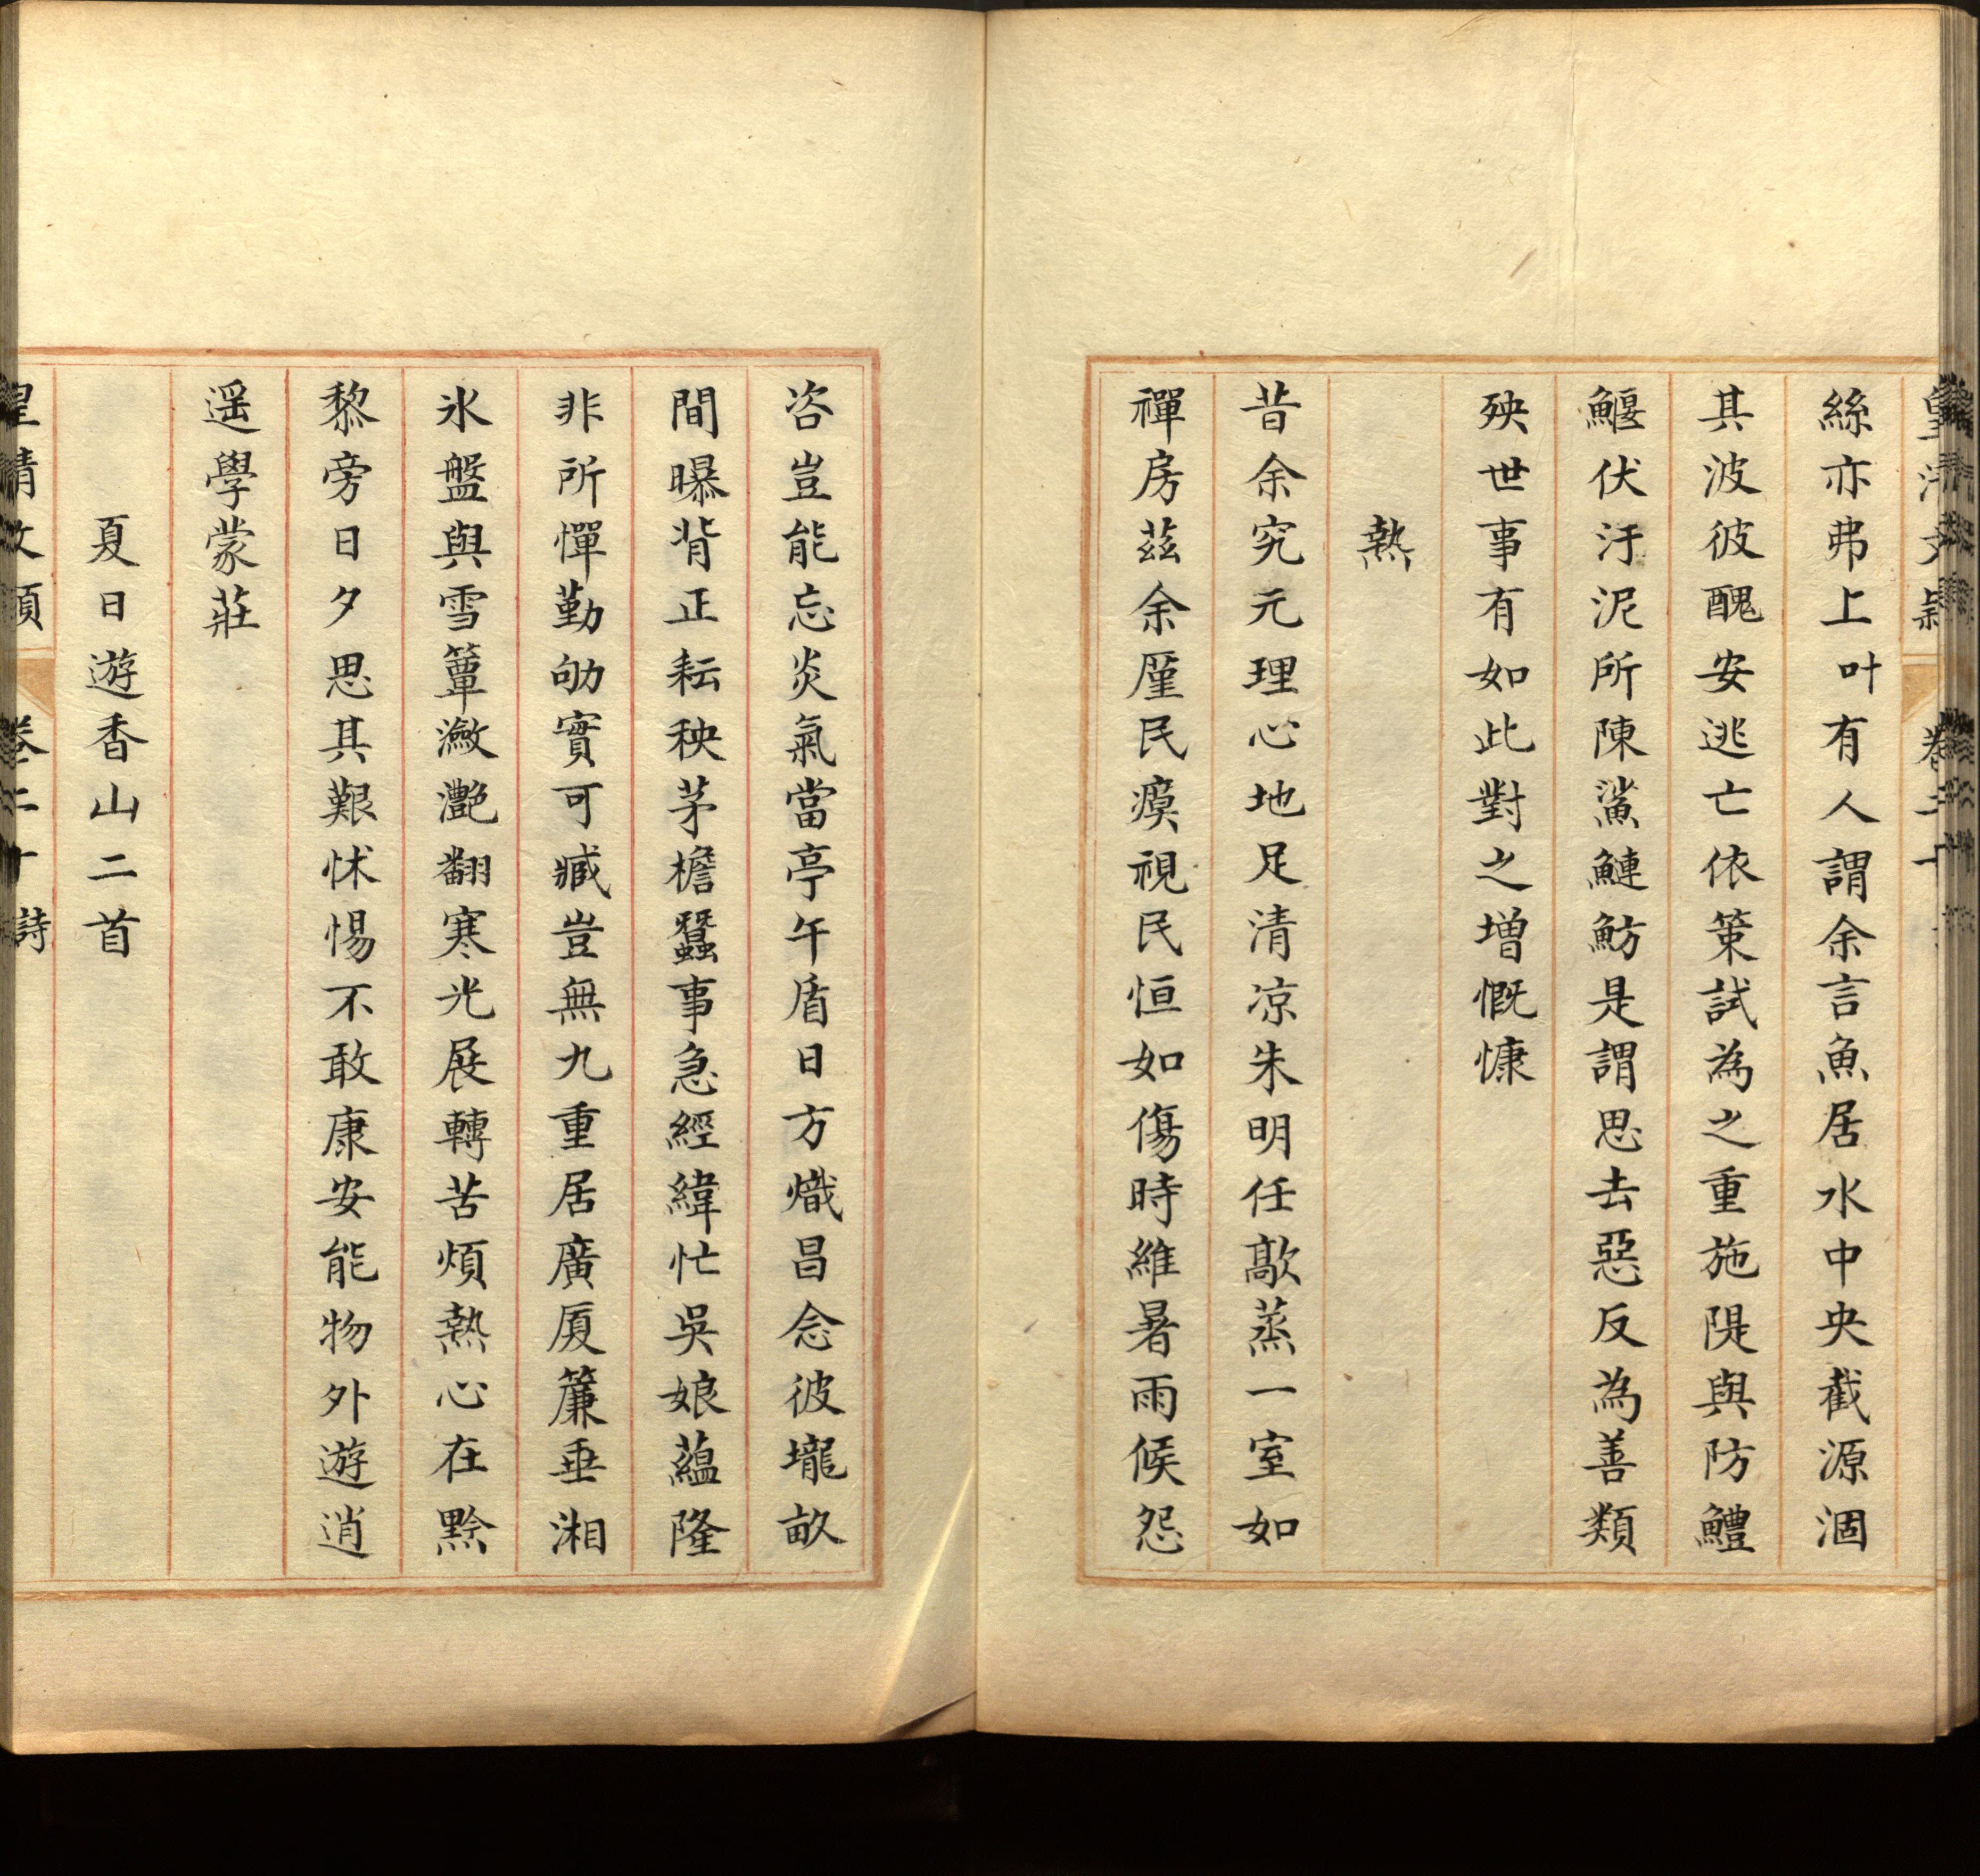 皇清文穎 卷二十
絲亦弗上叶有人謂余言魚居水中央截源涸
其波彼醜安逃亡依策試為之重施隄與防鱧
鰋伏汙泥所陳鯊鰱魴是謂思去惡反為善類
殃世事有如此對之增慨慷
熱
昔余究元理心地足清涼朱明任歊蒸一室如
禪房茲余廑民瘼視民恒如傷時維暑雨候怨
咨豈能忘炎氣當亭午盾日方熾昌念彼壠畝
間曝背正耘秧茅檐蠶事急經緯忙吳娘蘊隆
非所憚勤劬實可臧豈無九重居廣厦簾垂湘
氷盤與雪簟瀲灧翻寒光展轉苦煩熱心在黔
黎旁日夕思其艱怵惕不敢康安能物外遊逍
遥學蒙莊
夏日遊香山二首
皇清文穎 卷二十 詩